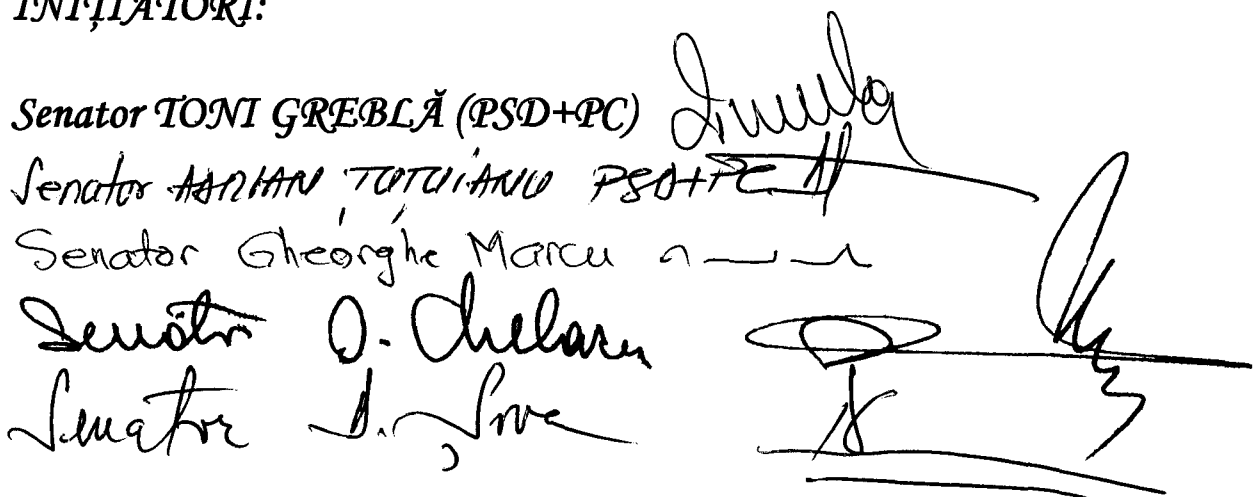 INIȚIATORI:
Senator TONI GREBLĂ (PSD+PC)
Senator ADRIAN TUTUIANU PSD+PC
Senator Gheorghe Marcu
Senator D. Chelaru
Senator D. Șova